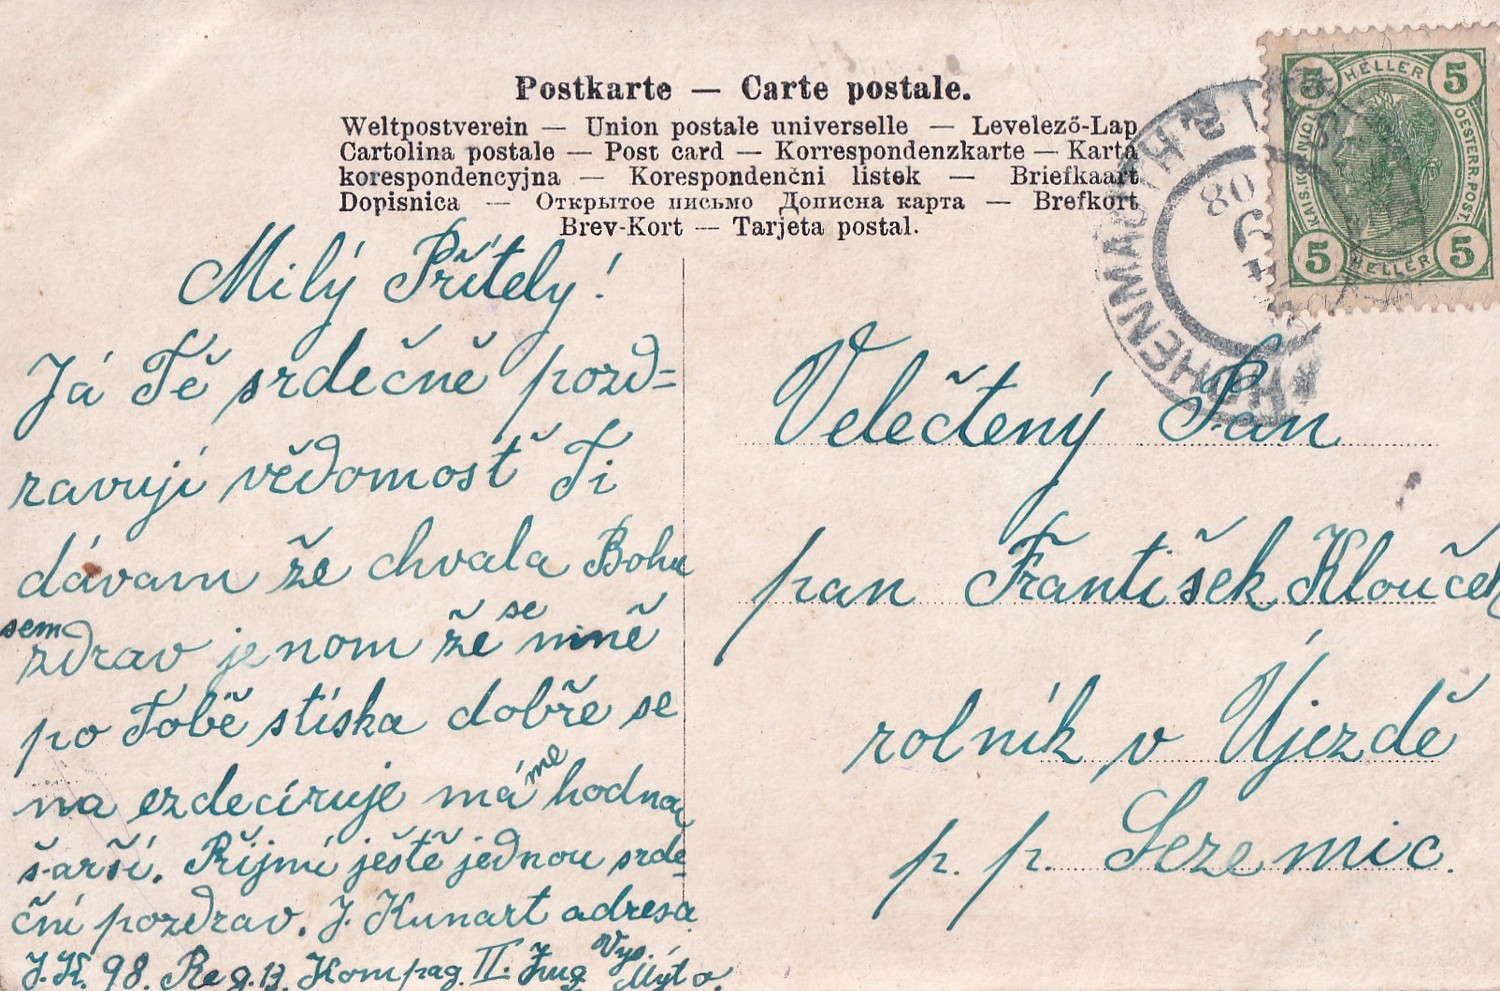 Postkarte — Carte postale.
Weltpostverein — Union postale universelle — Levelező-Lap
Cartolina postale — Post card — Korrespondenzkarte — Karta
korespondencyjna — Korespondenčni listek — Briefkaart
Dopisnica — Открытое письмо Дописна карта — Brefkort
Brev-Kort — Tarjeta postal.
5 HELLER 5
KAIS. KÖNIGL. OESTERR. POST
5 HELLER 5
HOHENMAUTH
08
Milý Přítely!
Já Tě srdečně pozd=
ravují vědomosť Ti
dávam že chvala Bohu
sem zdrav jenom že se mně
po Tobě stíska dobře se
na ezdecíruje máme hodna
šarší. Přijmi ještě jednou srde
ční pozdrav. J. Kunart adresa
J.K. 98. Reg. 13. Kompag. II. Zug Vys. Mýto.
Velečtený Pan
pan František Klouček
rolník v Újezdě
p. p. Sezemic.